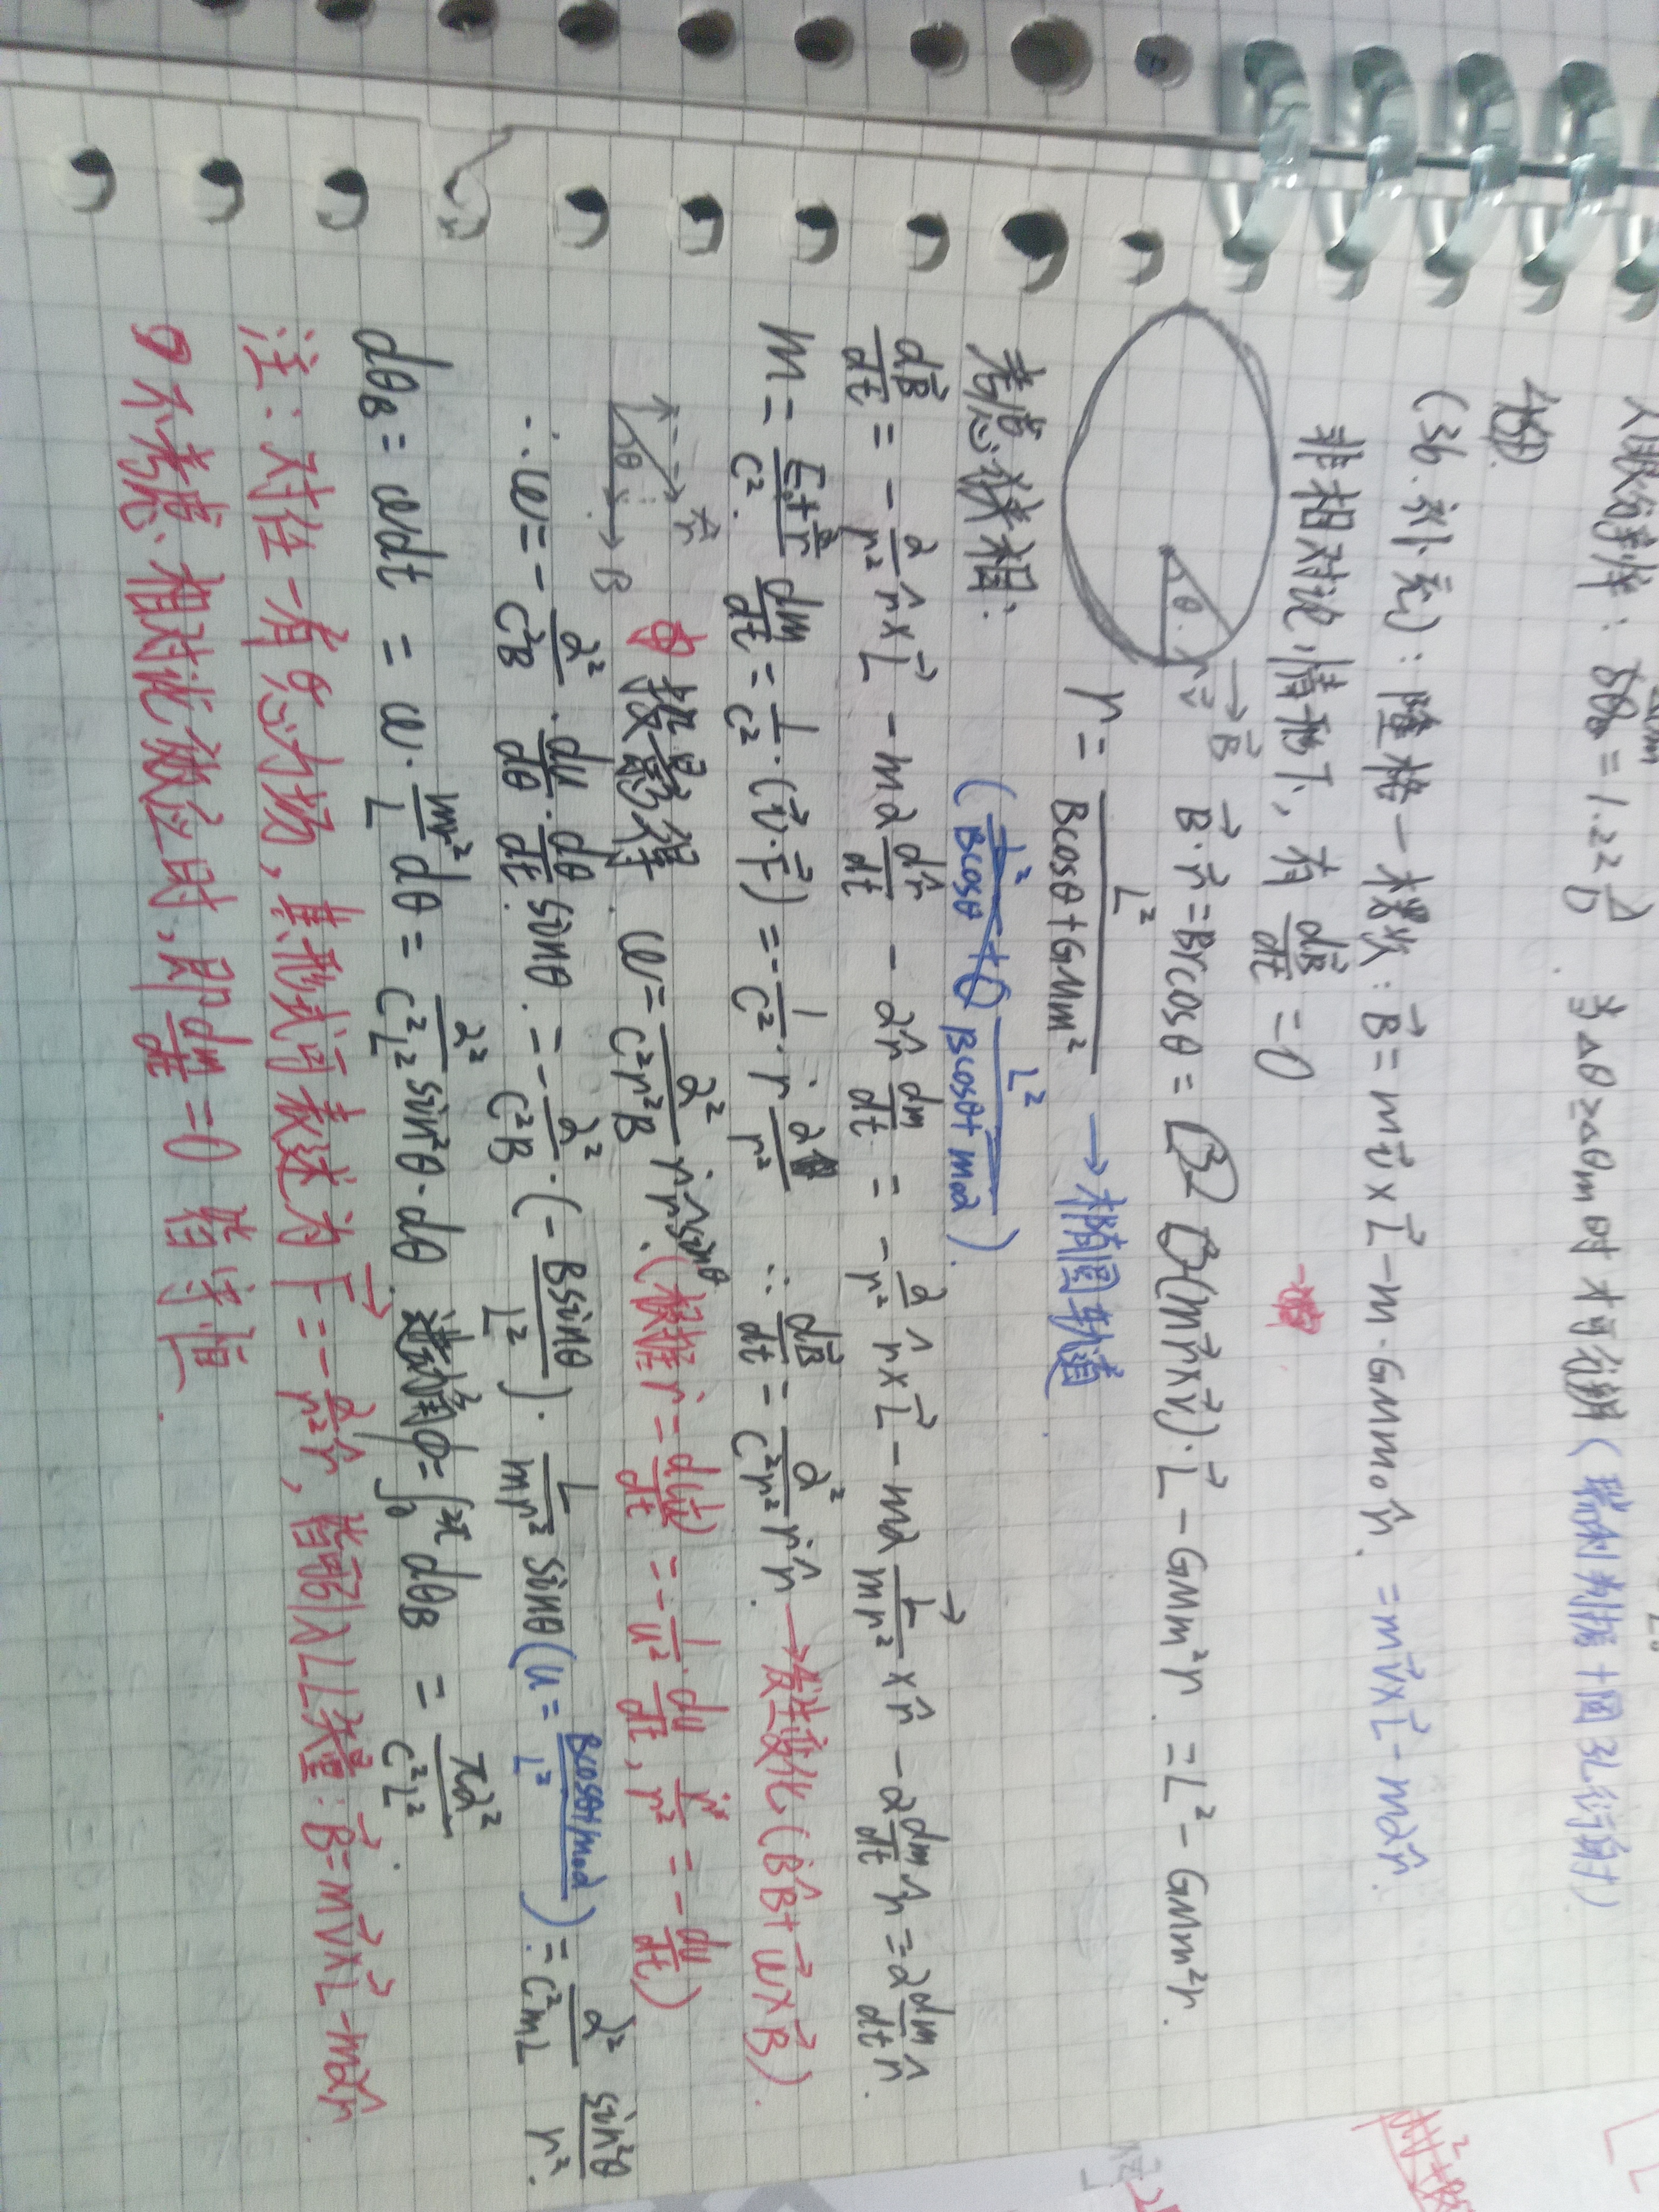 人眼分辨: δθ₀ = 1.22 λ/D. 当Δθ≥Δθm时才可分辨 (瑞利判据+圆孔衍射)
(36.补充): 隆格-楞次: B⃗ = mv⃗×L⃗ - m·GMmm₀r̂. = mv⃗×L⃗ - mαr̂.
非相对论情形下, 有 dB⃗/dt = 0
θ r⃗ B⃗ B⃗·r⃗ = Brcosθ = (mr⃗×v⃗)·L⃗ - GMm²r. = L² - GMm²r.
r = L²/(Bcosθ+GMm²) → 椭圆轨道
(L²/(Bcosθ+m₀α)).
考虑狭相:
dB⃗/dt = - α/r² r̂×L⃗ - mα dr̂/dt - αr̂ dm/dt = - α/r² r̂×L⃗ - mα L⃗/mr² ×r̂ - α dm/dt r̂ = α dm/dt r̂.
m = (E₀+α/r)/c². dm/dt = 1/c²·(v⃗·F⃗) = - 1/c²·ṙ α/r² ∴ dB⃗/dt = α²/(c²r²) ṙ r̂. → 发生变化 (ḂB̂+ω⃗×B⃗).
θ r̂ B 投影得. ω = α²/(c²r²B) ṙ r̂ sinθ. (根据 ṙ = d(1/u)/dt = - 1/u² · du/dt, ṙ/r² = - du/dt)
∴ ω = - α²/(c²B) · du/dθ · dθ/dt sinθ. = - α²/(c²B) · (- Bsinθ/L²) · L/mr² sinθ (u = (Bcosθ+m₀α)/L²) = α²/(c²mL) sin²θ/r².
dθB = ωdt = ω· mr²/L dθ = α²/(c²L²) sin²θ·dθ. 进动角φ = ∫₀^2π dθB = πα²/(c²L²).
注: 对任一有心力场, 其形式可表述为 F⃗ = - α/r² r̂, 皆可引入L矢量: B⃗ = mv⃗×L⃗ - mαr̂
不考虑相对论效应时, 即 dm/dt = 0 皆守恒.